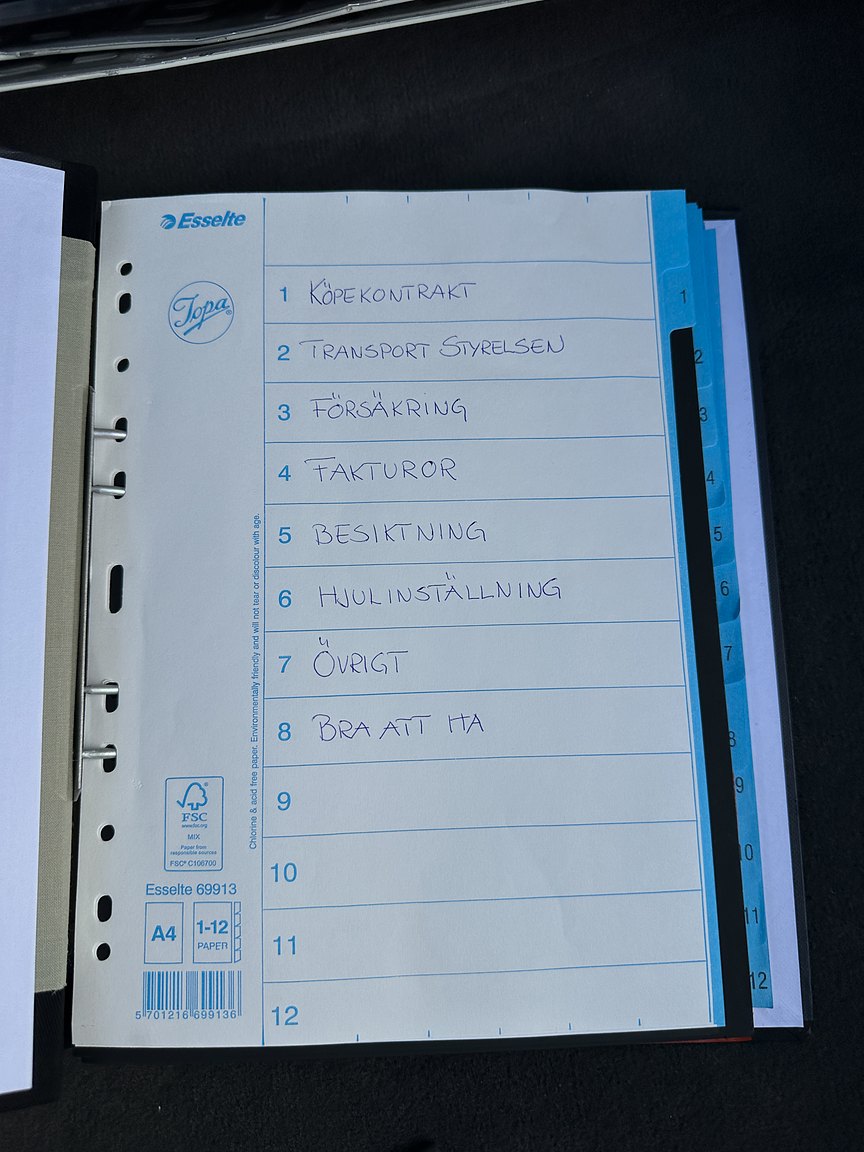 Esselte
Topa®
1 KÖPEKONTRAKT
2 TRANSPORT STYRELSEN
3 FÖRSÄKRING
4 FAKTUROR
5 BESIKTNING
6 HJULINSTÄLLNING
7 ÖVRIGT
8 BRA ATT HA
9
10
11
12
Chlorine & acid free paper. Environmentally friendly and will not tear or discolour with age.
FSC
www.fsc.org
MIX
Paper from
responsible sources
FSC® C106700
Esselte 69913
A4
1-12
PAPER
5 701216 699136
1
2
3
4
5
6
7
8
9
10
11
12